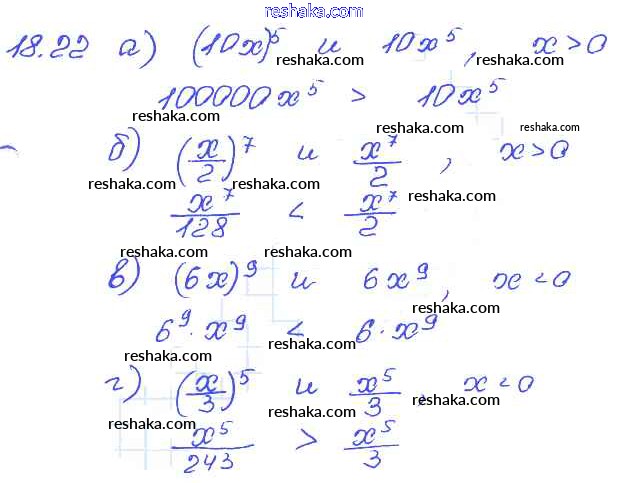 reshaka.com
18.22 а) (10x)⁵ и 10x⁵, x > 0
reshaka.com reshaka.com
100000x⁵ > 10x⁵
reshaka.com reshaka.com reshaka.com
б) (x/2)⁷ и x⁷/2, x > 0
reshaka.com reshaka.com
x⁷/128 < x⁷/2
reshaka.com reshaka.com
в) (6x)⁹ и 6x⁹, x < 0
reshaka.com reshaka.com
6⁹·x⁹ < 6·x⁹
reshaka.com reshaka.com
г) (x/3)⁵ и x⁵/3, x < 0
reshaka.com reshaka.com
x⁵/243 > x⁵/3
reshaka.com reshaka.com